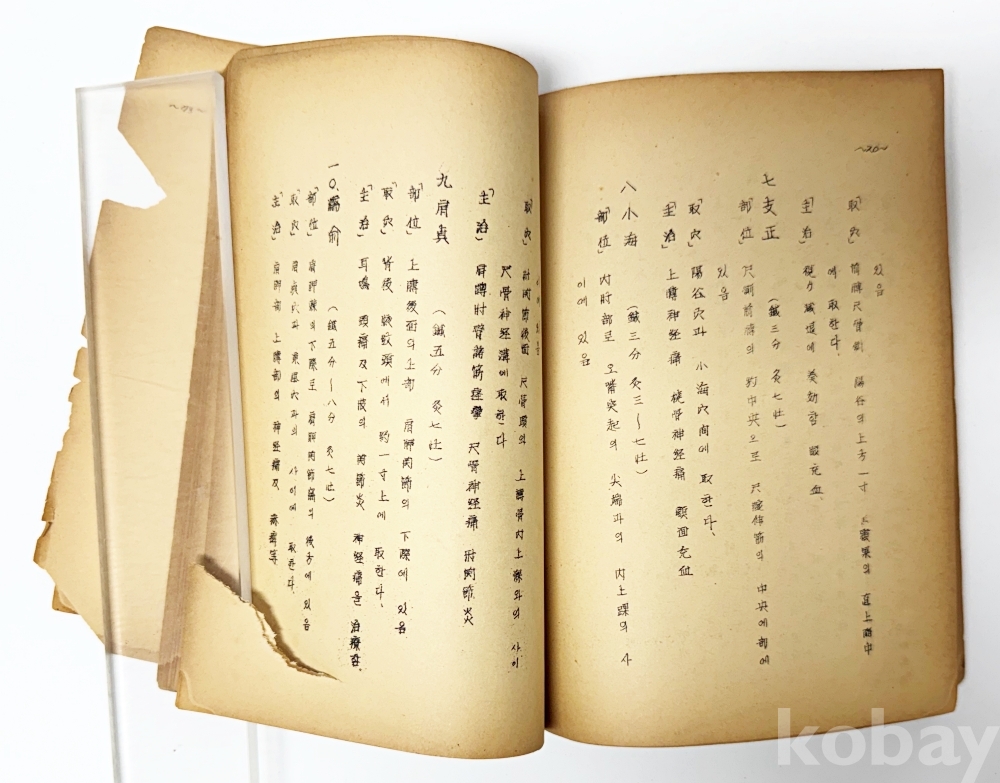 있음
「取穴」 前膊尺骨側 陽谷의 上方 一寸 直上
에 取한다.
「主治」 에 奏効함 眼充血.
七 支正 (鍼三分 灸七壮)
「部位」 尺側前膊의 約中央으로 尺腕伸筋의 中央에部에
있음
「取穴」 陽谷穴과 小海穴间에 取한다.
「主治」 上膊神経痛 桡骨神経痛 顔面充血
八 小海 (鍼三分 灸三~七壮)
「部位」 内肘部로 오嘴突起의 尖端과의 内上踝의 사
이에 있음
「取穴」 肘関節後面 尺骨頭의 上膊骨内上踝와의 사이
尺骨神経溝에 取한다
「主治」 肩膊肘臂諸筋痙攣 尺骨神経痛 肘関節炎
九 肩貞 (鍼五分 灸七壮)
「部位」 上膊後面의 上部 肩胛関節의 下際에 있음
「取穴」 背後 皺紋頭에서 約一寸上에 取한다.
「主治」 耳鳴 頭痛及下肢의 関節炎 神経痛을 治療함.
一〇. 臑俞 (鍼五分~八分 灸七壮)
「部位」 肩胛棘의 下際로 肩胛関節窩의 後方에 있음
「取穴」 肩貞穴과 秉風穴과의 사이에 取한다.
「主治」 肩胛部 上膊部의 神経痛及 麻痺等
kobay